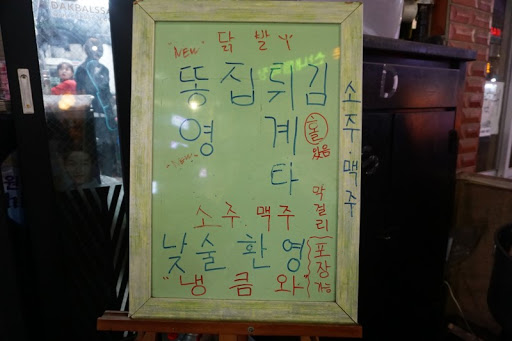 DAKBALSSA
"NEW" 닭 발
똥 집 튀 김
영 계 타
"NEW"
홀 있음
소주·맥주
막걸리
소 주 · 맥 주
낮 술 환 영
"냉 큼 와"
포장 가능